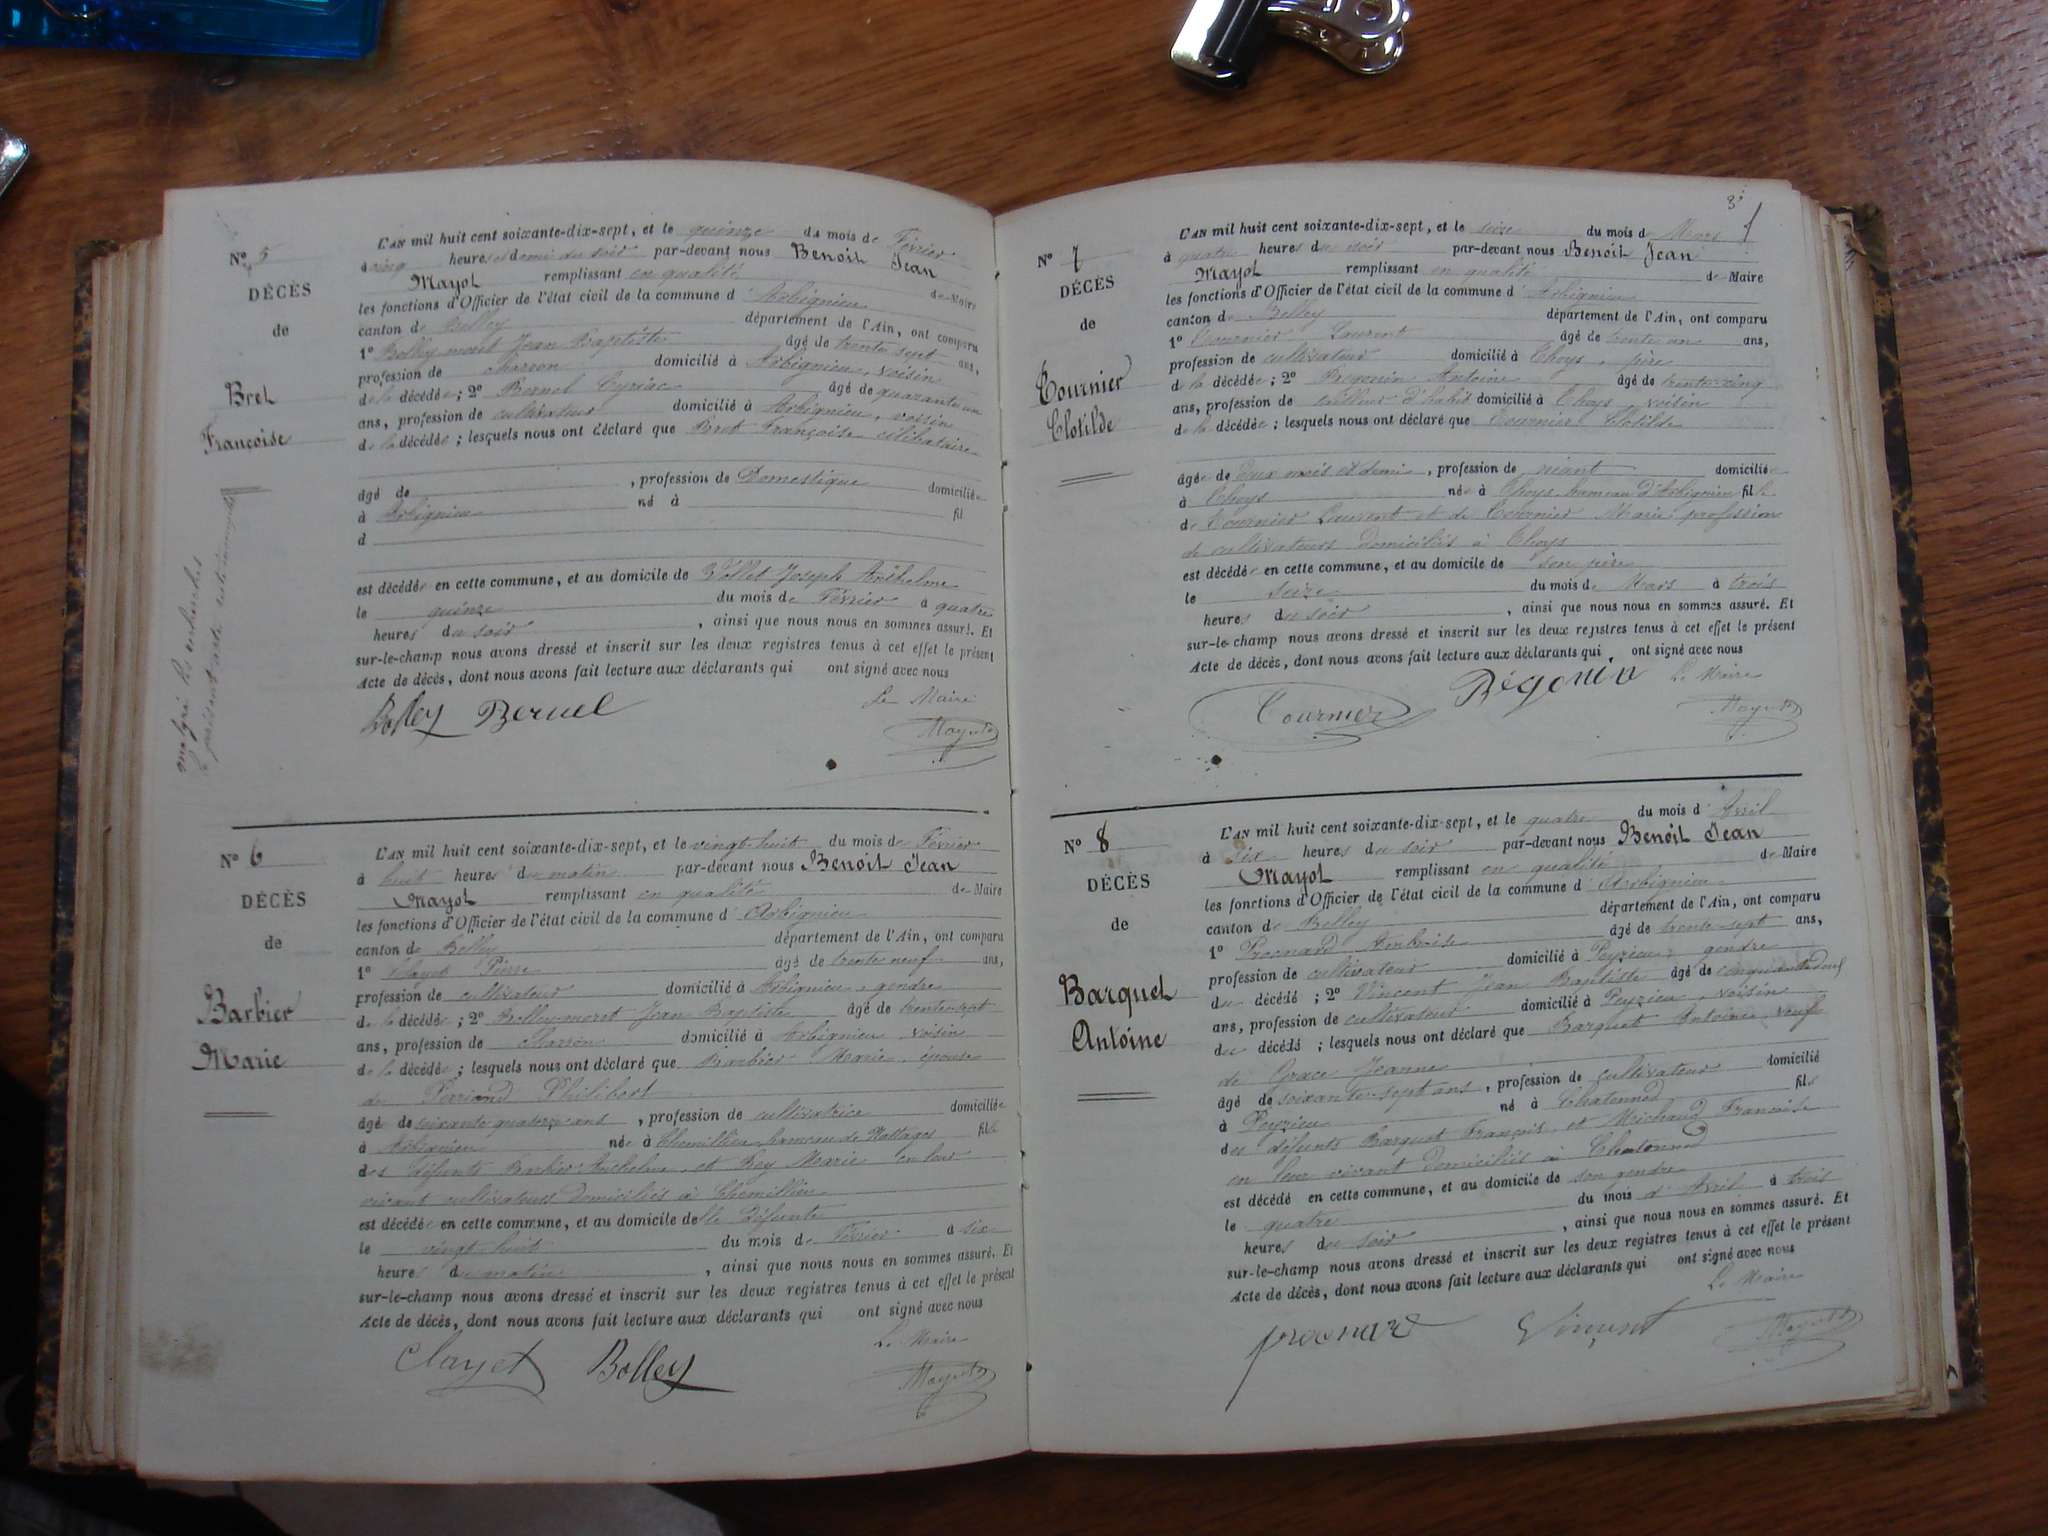 N° 5
DÉCÈS
de
Bret
Françoise
malgré les recherches
le présent acte est incomplet
L'AN mil huit cent soixante-dix-sept, et le quinze du mois de Février
à cinq heures et demie du soir par-devant nous Benoît Jean
Mayot remplissant en qualité de Maire
les fonctions d'Officier de l'état civil de la commune d'Arbignieu
canton de Belley département de l'Ain, ont comparu
1° Bolley moret Jean Baptiste âgé de trente sept ans,
profession de charron domicilié à Arbignieu, voisin
de la décédée ; 2° Bernel Cyriac âgé de quarante un
ans, profession de cultivateur domicilié à Arbignieu, voisin
de la décédée ; lesquels nous ont déclaré que Bret Françoise célibataire
âgé de , profession de Domestique domiciliée
à Arbignieu né à fil
d
est décédée en cette commune, et au domicile de Joseph Anthelme
le quinze du mois de Février à quatre
heures du soir , ainsi que nous nous en sommes assuré. Et
sur-le-champ nous avons dressé et inscrit sur les deux registres tenus à cet effet le présent
Acte de décès, dont nous avons fait lecture aux déclarants qui ont signé avec nous
Le Maire
Bolley Bernel
Mayot
N° 6
DÉCÈS
de
Barbier
Marie
L'AN mil huit cent soixante-dix-sept, et le vingt-huit du mois de Février
à huit heures du matin par-devant nous Benoît Jean
Mayot remplissant en qualité de Maire
les fonctions d'Officier de l'état civil de la commune d'Arbignieu
canton de Belley département de l'Ain, ont comparu
1° Clayet Pierre âgé de trente neuf ans,
profession de cultivateur domicilié à Arbignieu, gendre
de la décédée ; 2° Bolley moret Jean Baptiste âgé de trente-sept
ans, profession de charron domicilié à Arbignieu, voisin
de la décédée ; lesquels nous ont déclaré que Barbier Marie, épouse
de Perriand Philibert
âgé de soixante quatorze ans , profession de cultivatrice domiciliée
à Arbignieu née à Chemillieu, hameau de Nattages fille
des défunts Barbier Anthelme et Rey Marie en leur
vivant cultivateurs domiciliés à Chemillieu
est décédée en cette commune, et au domicile de la défunte
le vingt-huit du mois de Février à six
heures du matin , ainsi que nous nous en sommes assuré. Et
sur-le-champ nous avons dressé et inscrit sur les deux registres tenus à cet effet le présent
Acte de décès, dont nous avons fait lecture aux déclarants qui ont signé avec nous
Le Maire
Clayet Bolley
Mayot
3
N° 7
DÉCÈS
de
Tournier
Clotilde
L'AN mil huit cent soixante-dix-sept, et le seize du mois de Mars
à quatre heures du soir par-devant nous Benoît Jean
Mayot remplissant en qualité de Maire
les fonctions d'Officier de l'état civil de la commune d'Arbignieu
canton de Belley département de l'Ain, ont comparu
1° Tournier Laurent âgé de trente un ans,
profession de cultivateur domicilié à Thoys, père
de la décédée ; 2° Begonin Antoine âgé de trente-cinq
ans, profession de tailleur d'habit domicilié à Thoys, voisin
de la décédée ; lesquels nous ont déclaré que Tournier Clotilde
âgée de deux mois et demi , profession de néant domiciliée
à Thoys née à Thoys, hameau d'Arbignieu fille
de Tournier Laurent et de Tournier Marie, profession
de cultivateurs domiciliés à Thoys
est décédée en cette commune, et au domicile de son père
le seize du mois de Mars à trois
heures du soir , ainsi que nous nous en sommes assuré. Et
sur-le-champ nous avons dressé et inscrit sur les deux registres tenus à cet effet le présent
Acte de décès, dont nous avons fait lecture aux déclarants qui ont signé avec nous
Le Maire
Tournier Bégonin
Mayot
N° 8
DÉCÈS
de
Barquet
Antoine
L'AN mil huit cent soixante-dix-sept, et le quatre du mois d'Avril
à six heures du soir par-devant nous Benoît Jean
Mayot remplissant en qualité de Maire
les fonctions d'Officier de l'état civil de la commune d'Arbignieu
canton de Belley département de l'Ain, ont comparu
1° Proonard Ambroise âgé de trente-sept ans,
profession de cultivateur domicilié à Peyzieu, gendre
du décédé ; 2° Vincent Jean Baptiste âgé de cinquante deux
ans, profession de cultivateur domicilié à Peyzieu, voisin
du décédé ; lesquels nous ont déclaré que Barquet Antoine veuf
de Jeanne
âgé de soixante-sept ans , profession de cultivateur domicilié
à Peyzieu né à Chatonnod fils
des défunts Barquet François et Michaud Françoise
en leur vivant domiciliés à Chatonnod
est décédé en cette commune, et au domicile de son gendre
le quatre du mois d'Avril à trois
heures du soir , ainsi que nous nous en sommes assuré. Et
sur-le-champ nous avons dressé et inscrit sur les deux registres tenus à cet effet le présent
Acte de décès, dont nous avons fait lecture aux déclarants qui ont signé avec nous
Le Maire
Vincent
Mayot